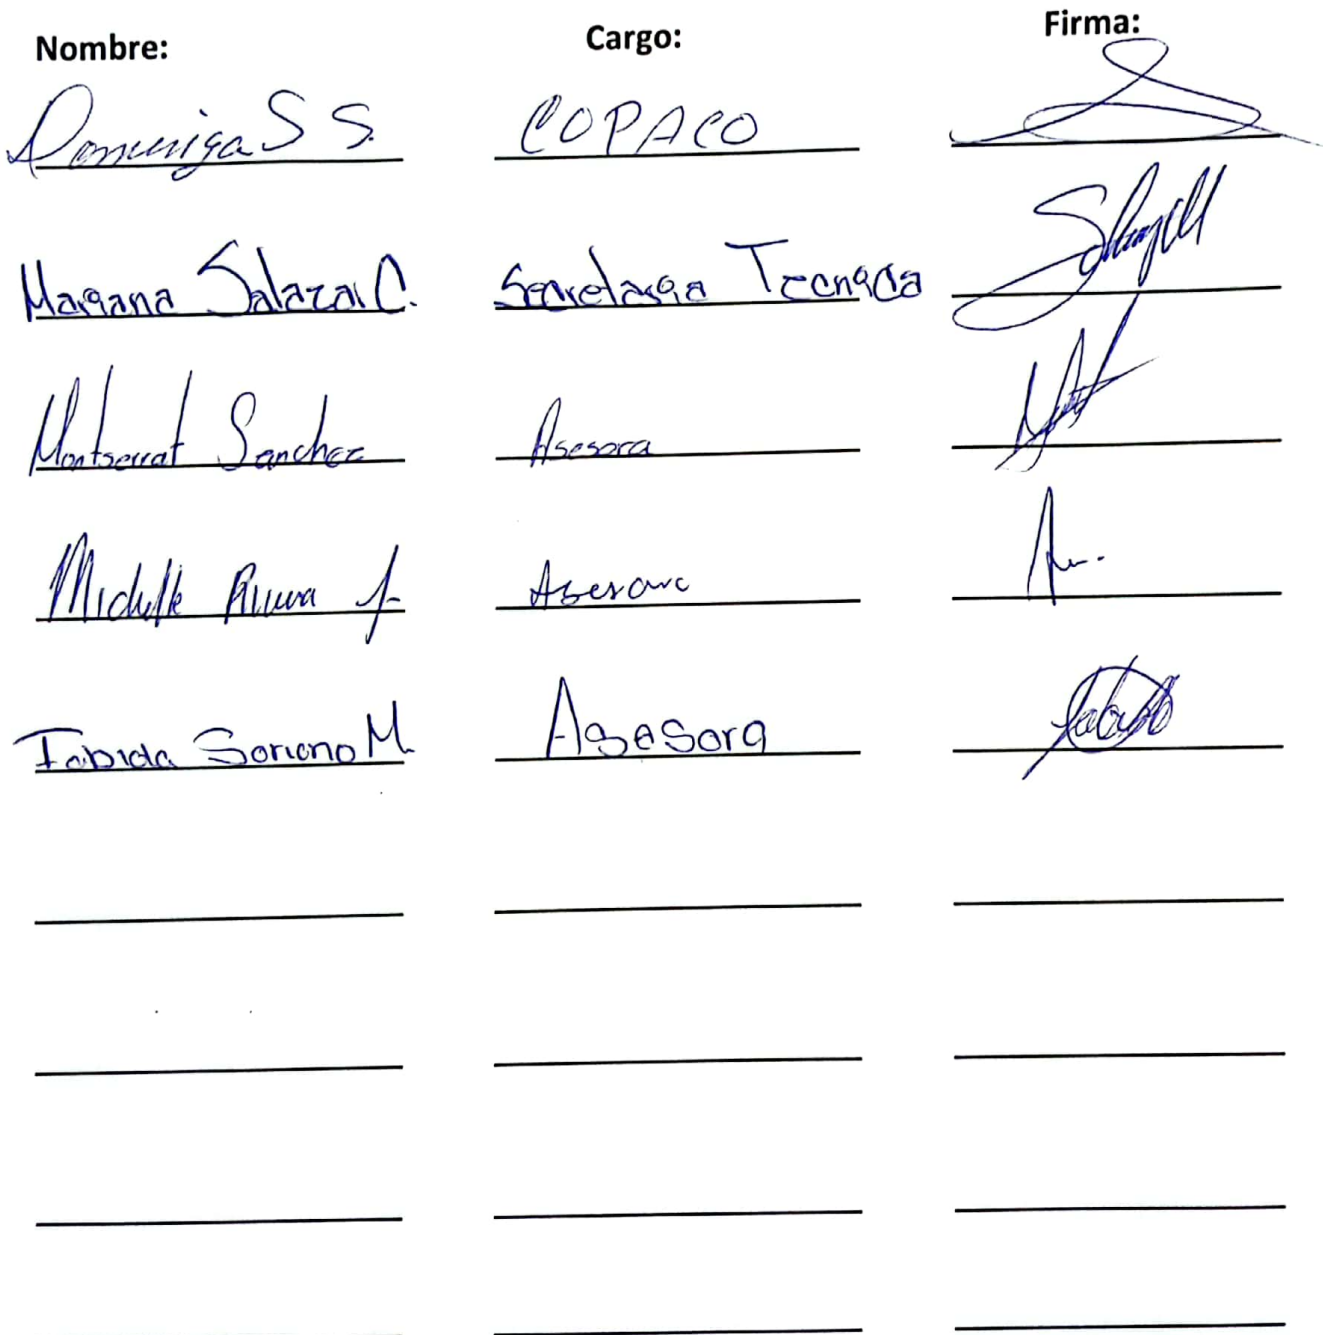 Nombre: Cargo: Firma:
S S. COPACO
Mariana Salazar C. Secretaria Tecnica
Montserrat Sanchez Asesora
Michelle Asesora
Tabida Soriano M. Asesora